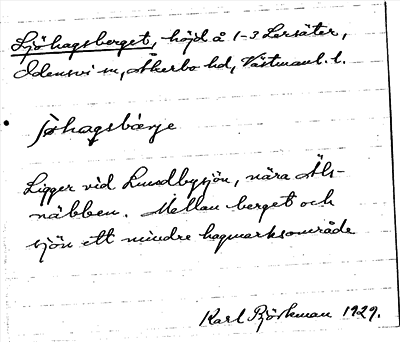 Sjöhagsberget, höjd å 1-3 Lersäter,
Odensvi sn, Åkerbo hd, Västmanl. l.
ʃøhagsbærje
Ligger vid Lundbysjön, nära Åls-
näbben. Mellan berget och
sjön ett mindre hagmarksområde
Karl Björkman 1929.